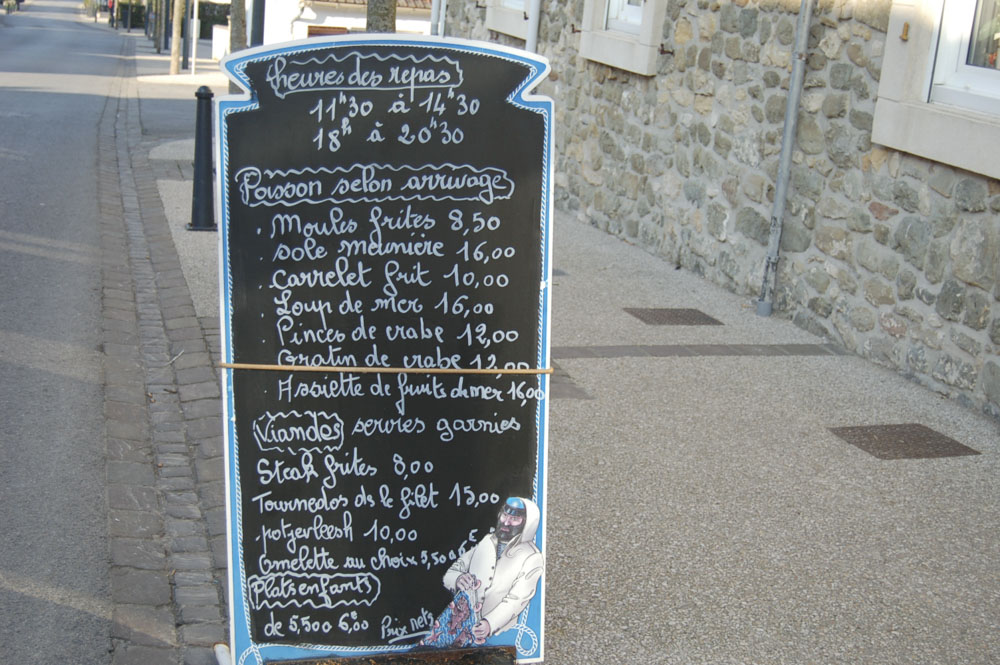 heures des repas
11h30 à 14h30
18h à 20h30
Poisson selon arrivage
. Moules frites 8,50
. sole meunière 16,00
. Carrelet frit 10,00
. Loup de mer 16,00
. Pinces de crabe 12,00
. Gratin de crabe 12,00
. Assiette de fruits de mer 16,00
Viandes servies garnies
Steak frites 8,00
Tournedos de le filet 15,00
potjevleesh 10,00
Omelette au choix 5,50 à 6€
Plats enfants
de 5,50 à 6€
Prix nets